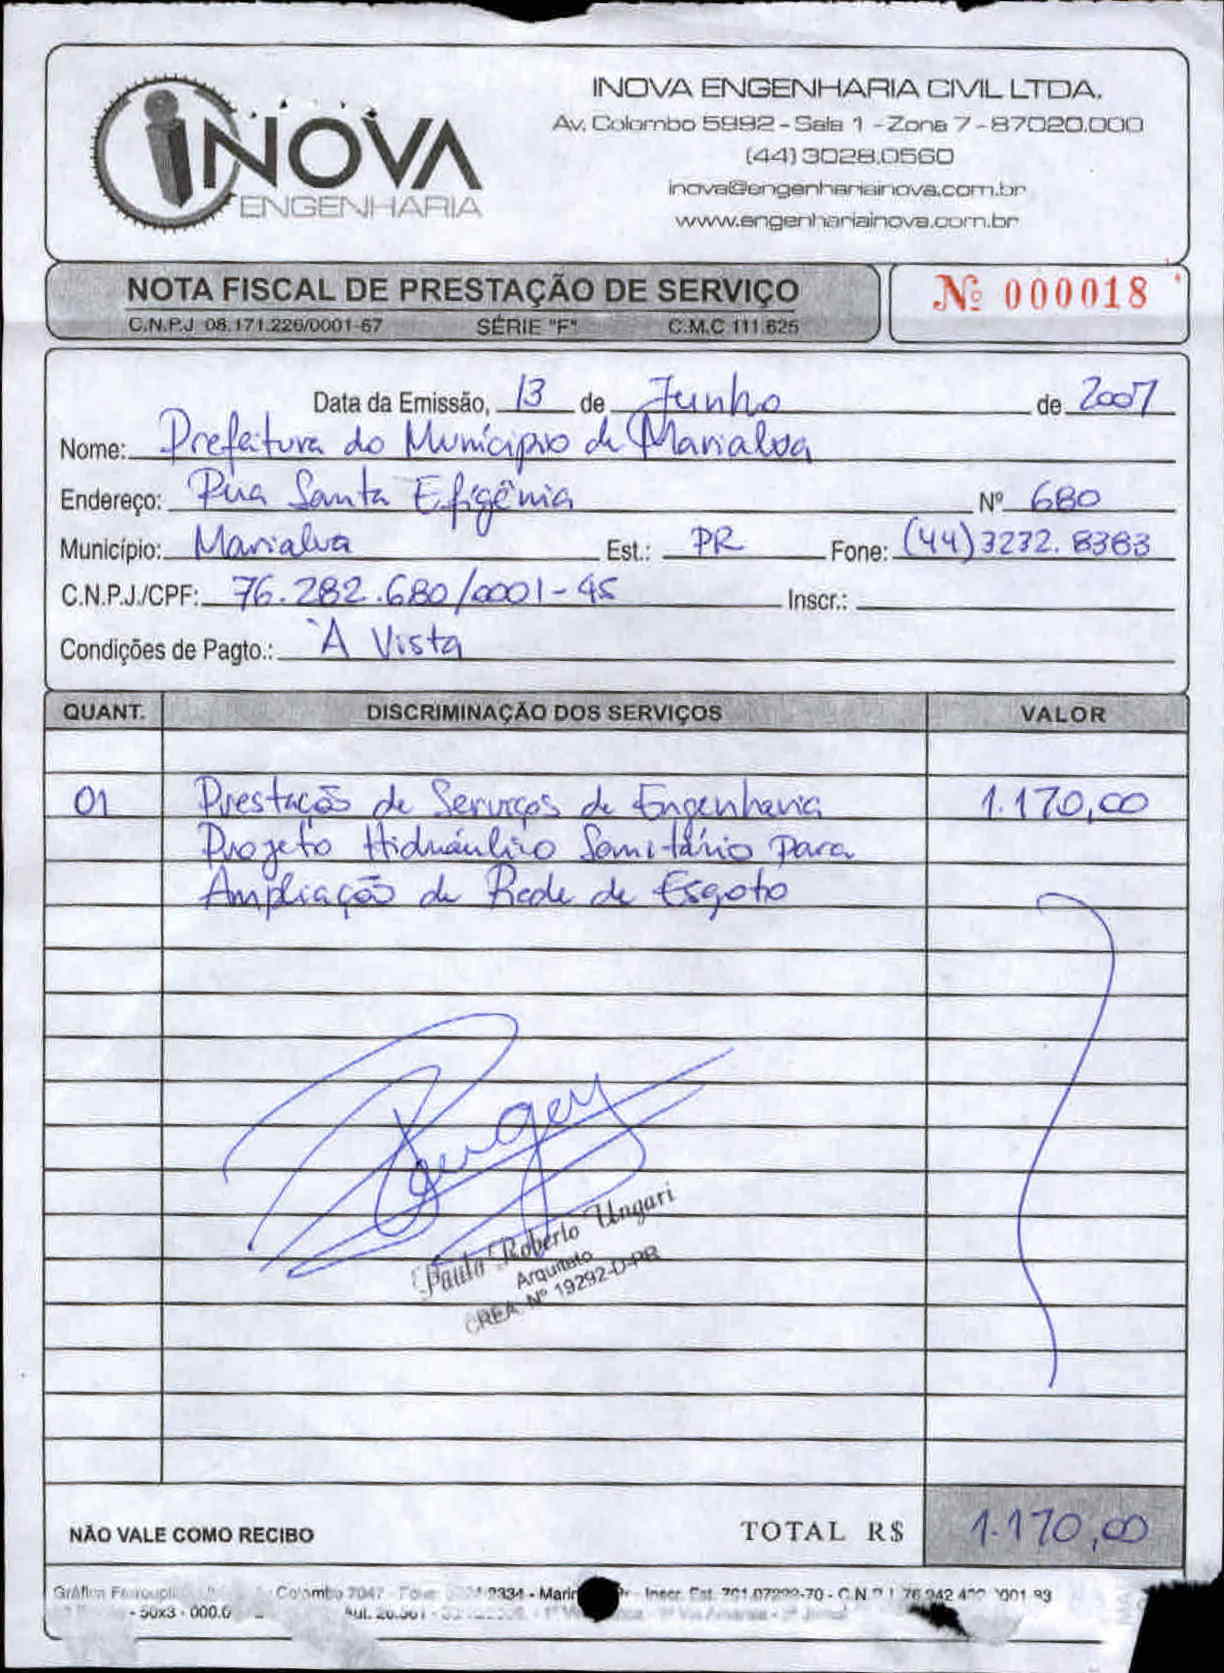 iNOVA
ENGENHARIA
INOVA ENGENHARIA CIVIL LTDA.
Av. Colombo 5892 - Sala 1 - Zona 7 - 87020.000
(44) 3028.0560
inova@engenhariainova.com.br
www.engenhariainova.com.br
NOTA FISCAL DE PRESTAÇÃO DE SERVIÇO
C.N.P.J 08.171.226/0001-67 SÉRIE "F" C.M.C 111.625
Nº 000018
Data da Emissão, 13 de Junho de 2007
Nome: Prefeitura do Município de Marialva
Endereço: Rua Santa Efigênia Nº 680
Município: Marialva Est.: PR Fone: (44) 3232.8383
C.N.P.J./CPF: 76.282.680/0001-45 Inscr.:
Condições de Pagto.: À Vista
QUANT. DISCRIMINAÇÃO DOS SERVIÇOS VALOR
01 Prestação de Serviços de Engenharia 1.170,00
Projeto Hidráulico Sanitário Para
Ampliação de Rede de Esgoto
Paulo Roberto Ungari
Arquiteto
CREA Nº 19292-D-PR
NÃO VALE COMO RECIBO TOTAL R$ 1.170,00
Gráfica Colombo 7047 - 2334 - Inscr. Est.
- 50x3 - 000.0